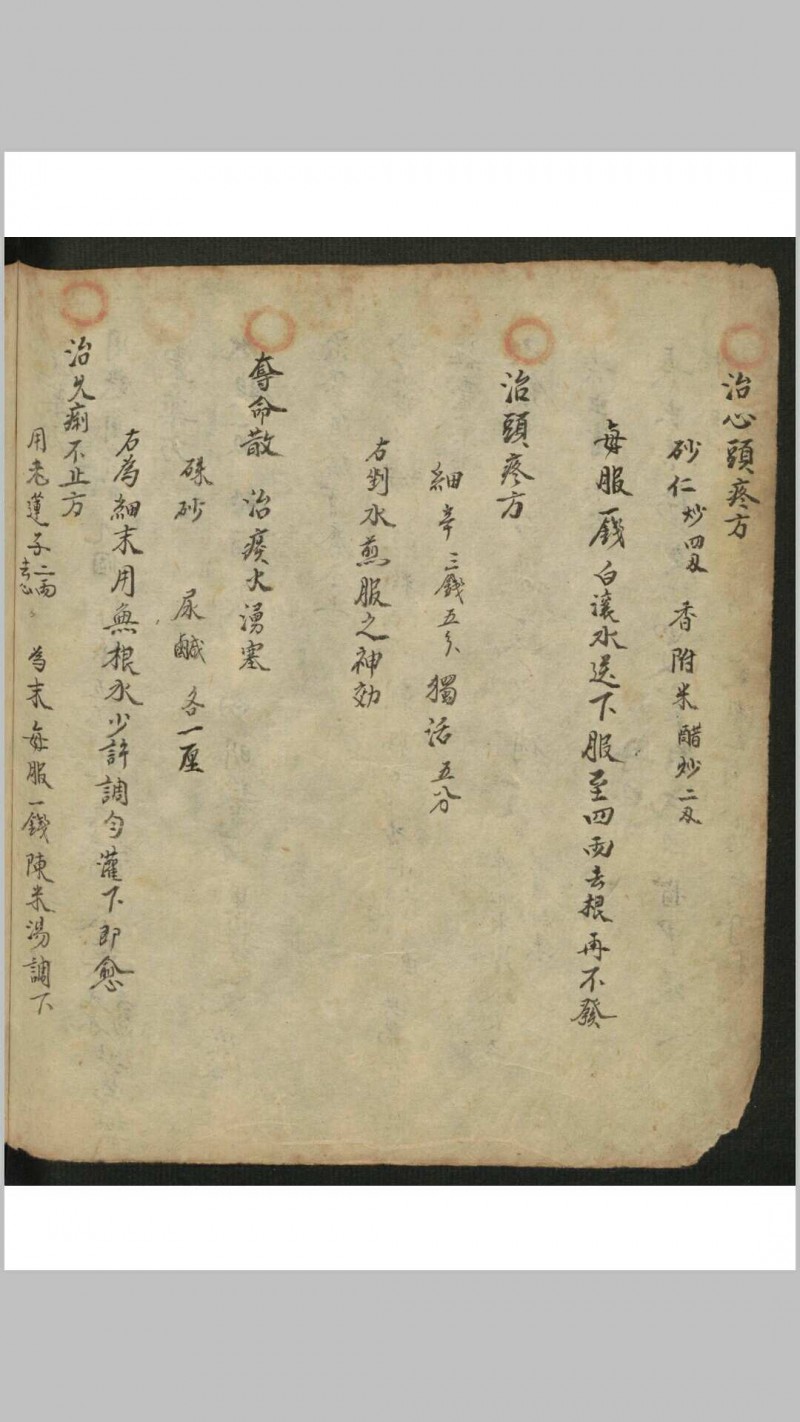 治心頭疼方
砂仁炒四兩 香附米醋炒二兩
每服一錢白滾水送下服至四兩去根再不發
治頭疼方
細辛三錢五分 獨活五分
右剉水煎服之神効
奪命散 治痰火湧塞
硃砂 尿鹹 各一厘
右為細末用無根水少許調勻灌下即愈
治久痢不止方
用老蓮子二兩去心 為末每服一錢陳米湯調下